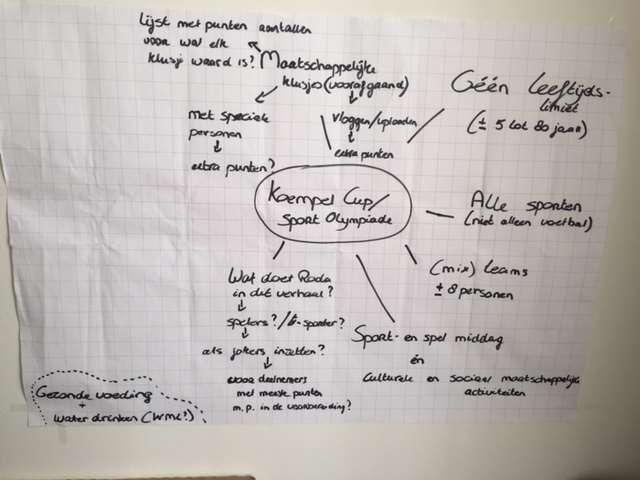 Lijst met punten aantallen
voor wat elk
klusje waard is?
Maatschappelijke
klusjes (voorafgaand)
met speciale
personen
extra punten?
vloggen/uploaden
extra punten
Géén leeftijds-
limiet
(± 5 tot 80 jaar)
Koempel Cup/
Sport Olympiade
Alle sporten
(niet alleen voetbal)
(mix) teams
± 8 personen
Sport- en spel middag
én
Culturele en sociaal maatschappelijke
activiteiten
Wat doet Roda
in dit verhaal?
spelers? / -sporter?
als jokers inzetten?
voor deelnemers
met meeste punten
m.p. in de voorbereiding?
Gezonde voeding
+
water drinken (WML?)